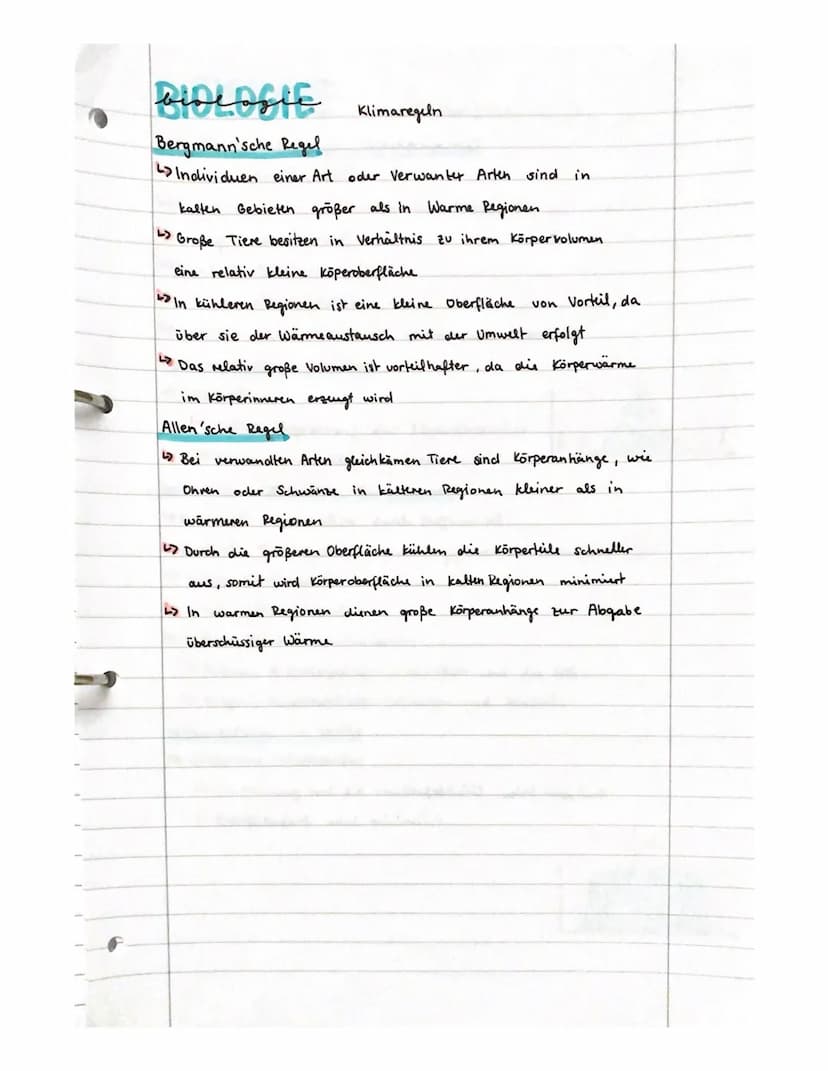 BIOLOGIE
biologie Klimaregeln
Bergmann'sche Regel
↳ Individuen einer Art oder Verwanter Arten sind in
kalten Gebieten größer als in Warme Regionen
↳ Große Tiere besitzen in Verhältnis zu ihrem Körpervolumen
eine relativ kleine Köperoberfläche
↳ In kühleren Regionen ist eine kleine Oberfläche von Vorteil, da
über sie der Wärmeaustausch mit der Umwelt erfolgt
↳ Das relativ große Volumen ist vorteilhafter, da die Körperwärme
im Körperinneren erzeugt wird
Allen'sche Regel
↳ Bei verwandten Arten gleichkämen Tiere sind Körperanhänge, wie
Ohren oder Schwänze in kälteren Regionen kleiner als in
wärmeren Regionen
↳ Durch die größeren Oberfläche kühlen die Körperteile schneller
aus, somit wird Körperoberfläche in kalten Regionen minimiert
↳ In warmen Regionen dienen große Körperanhänge zur Abgabe
überschüssiger Wärme